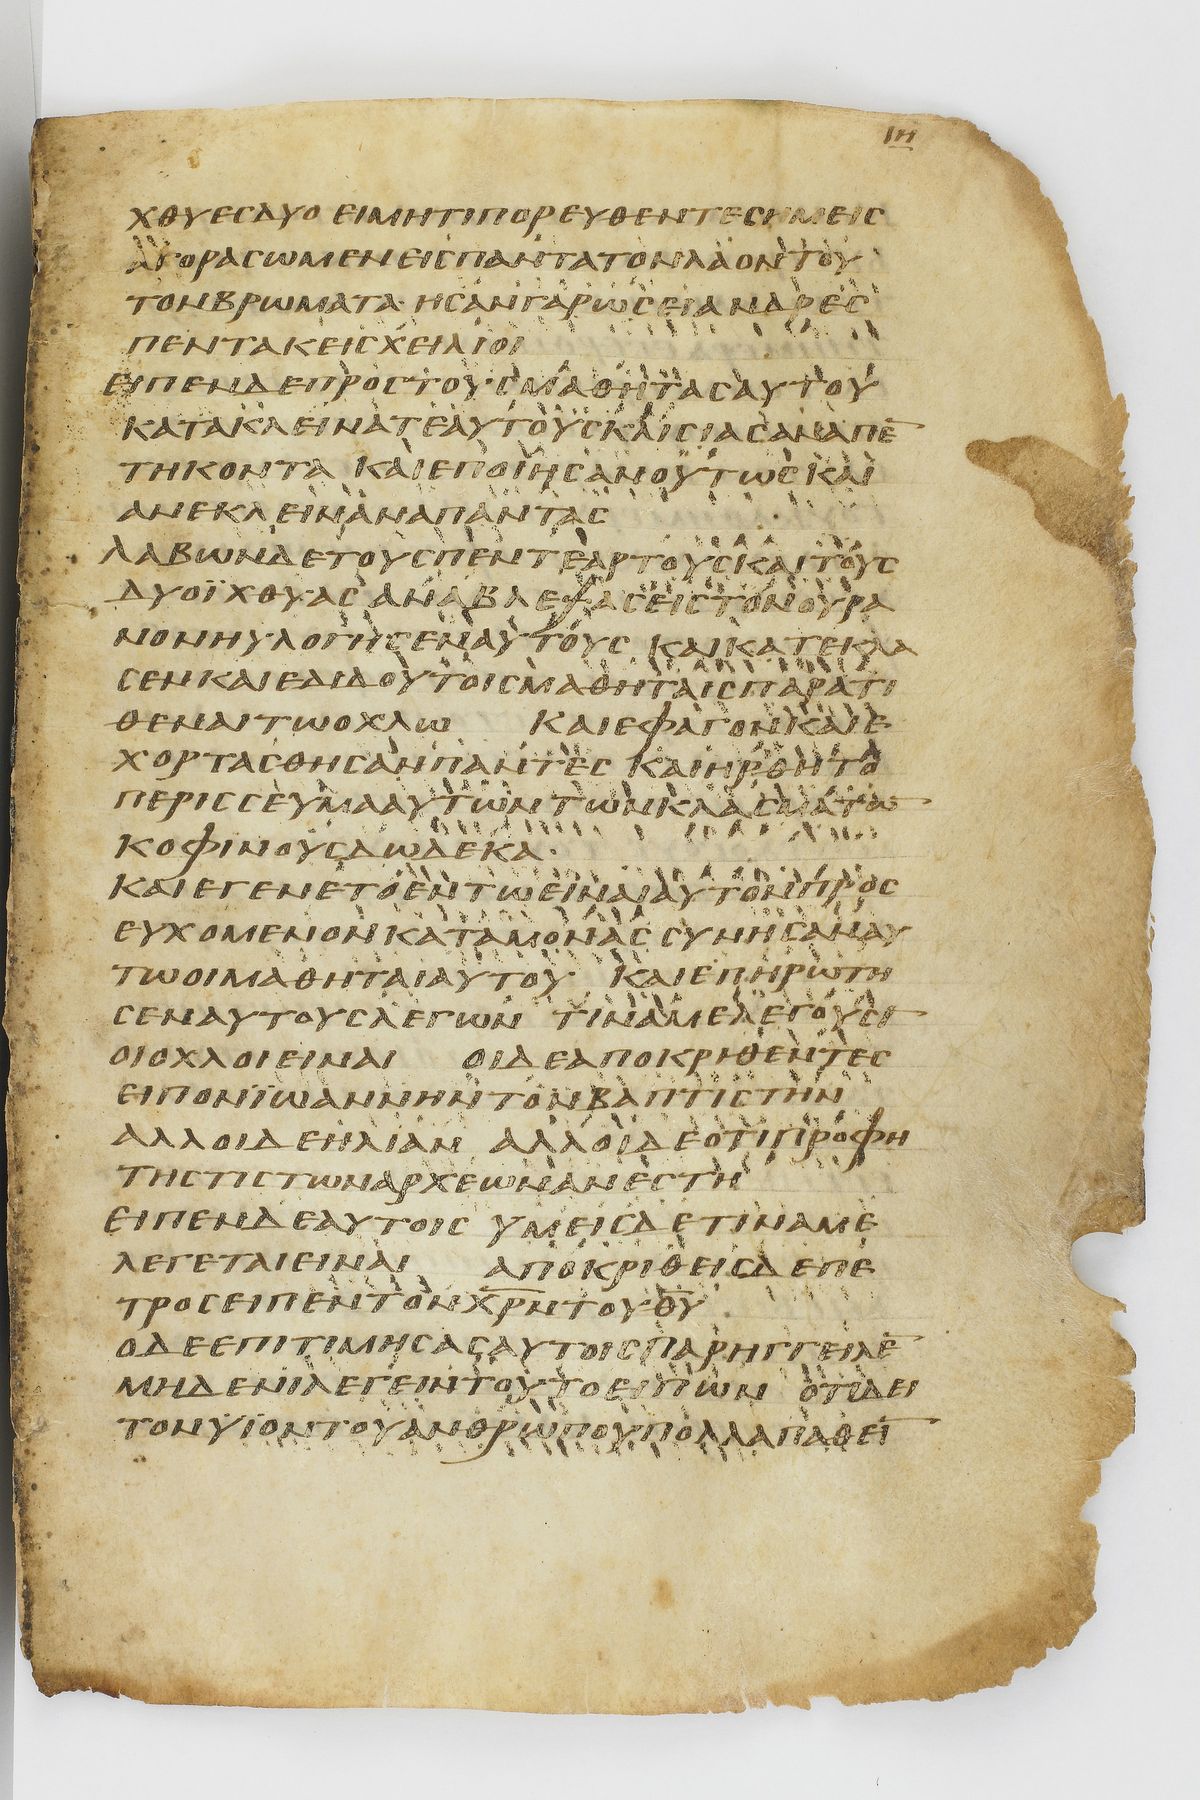 ΙΗ
ΧΘΥΕϹΔΥΟ ΕΙΜΗΤΙΠΟΡΕΥΘΕΝΤΕϹΗΜΕΙϹ
ΑΓΟΡΑϹΩΜΕΝΕΙϹΠΑΝΤΑΤΟΝΛΑΟΝΤΟΥ
ΤΟΝΒΡΩΜΑΤΑ· ΗϹΑΝΓΑΡΩϹΕΙΑΝΔΡΕϹ
ΠΕΝΤΑΚΕΙϹΧΕΙΛΙΟΙ
ΕΙΠΕΝΔΕΠΡΟϹΤΟΥϹΜΑΘΗΤΑϹΑΥΤΟΥ
ΚΑΤΑΚΛΕΙΝΑΤΕΑΥΤΟΥϹΚΛΙϹΙΑϹΑΝΑΠΕ̅
ΤΗΚΟΝΤΑ ΚΑΙΕΠΟΙΗϹΑΝΟΥΤΩϹΚΑΙ
ΑΝΕΚΛΕΙΝΑΝΑΠΑΝΤΑϹ
ΛΑΒΩΝΔΕΤΟΥϹΠΕΝΤΕΑΡΤΟΥϹΚΑΙΤΟΥϹ
ΔΥΟΪΧΘΥΑϹ ΑΝΑΒΛΕΨΑϹΕΙϹΤΟΝΟΥΡΑ
ΝΟΝΗΥΛΟΓΗϹΕΝΑΥΤΟΥϹ ΚΑΙΚΑΤΕΚΛΑ
ϹΕΝΚΑΙΕΔΙΔΟΥΤΟΙϹΜΑΘΗΤΑΙϹΠΑΡΑΤΙ
ΘΕΝΑΙΤΩΟΧΛΩ ΚΑΙΕΦΑΓΟΝΚΑΙΕ
ΧΟΡΤΑϹΘΗϹΑΝΠΑΝΤΕϹ ΚΑΙΗΡΘΗΤΟ
ΠΕΡΙϹϹΕΥΜΑΑΥΤΩΝΤΩΝΚΛΑϹΜΑΤΩ̅
ΚΟΦΙΝΟΥϹΔΩΔΕΚΑ·
ΚΑΙΕΓΕΝΕΤΟΕΝΤΩΕΙΝΑΙΑΥΤΟΝΠΡΟϹ
ΕΥΧΟΜΕΝΟΝΚΑΤΑΜΟΝΑϹ ϹΥΝΗϹΑΝΑΥ
ΤΩΟΙΜΑΘΗΤΑΙΑΥΤΟΥ ΚΑΙΕΠΗΡΩΤΗ
ϹΕΝΑΥΤΟΥϹΛΕΓΩΝ ΤΙΝΑΜΕΛΕΓΟΥϹΙ̅
ΟΙΟΧΛΟΙΕΙΝΑΙ ΟΙΔΕΑΠΟΚΡΙΘΕΝΤΕϹ
ΕΙΠΟΝΪΩΑΝΝΗΝΤΟΝΒΑΠΤΙϹΤΗΝ
ΑΛΛΟΙΔΕΗΛΙΑΝ ΑΛΛΟΙΔΕΟΤΙΠΡΟΦΗ
ΤΗϹΤΙϹΤΩΝΑΡΧΕΩΝΑΝΕϹΤΗ
ΕΙΠΕΝΔΕΑΥΤΟΙϹ ΥΜΕΙϹΔΕΤΙΝΑΜΕ
ΛΕΓΕΤΑΙΕΙΝΑΙ ΑΠΟΚΡΙΘΕΙϹΔΕΠΕ
ΤΡΟϹΕΙΠΕΝΤΟΝΧ̅Ρ̅Ν̅ΤΟΥΘ̅Υ̅
ΟΔΕΕΠΙΤΙΜΗϹΑϹΑΥΤΟΙϹΠΑΡΗΓΓΕΙΛΕ̅
ΜΗΔΕΝΙΛΕΓΕΙΝΤΟΥΤΟΕΙΠΩΝ ΟΤΙΔΕΙ
ΤΟΝΥΪΟΝΤΟΥΑΝΘΡΩΠΟΥΠΟΛΛΑΠΑΘΕΙ̅